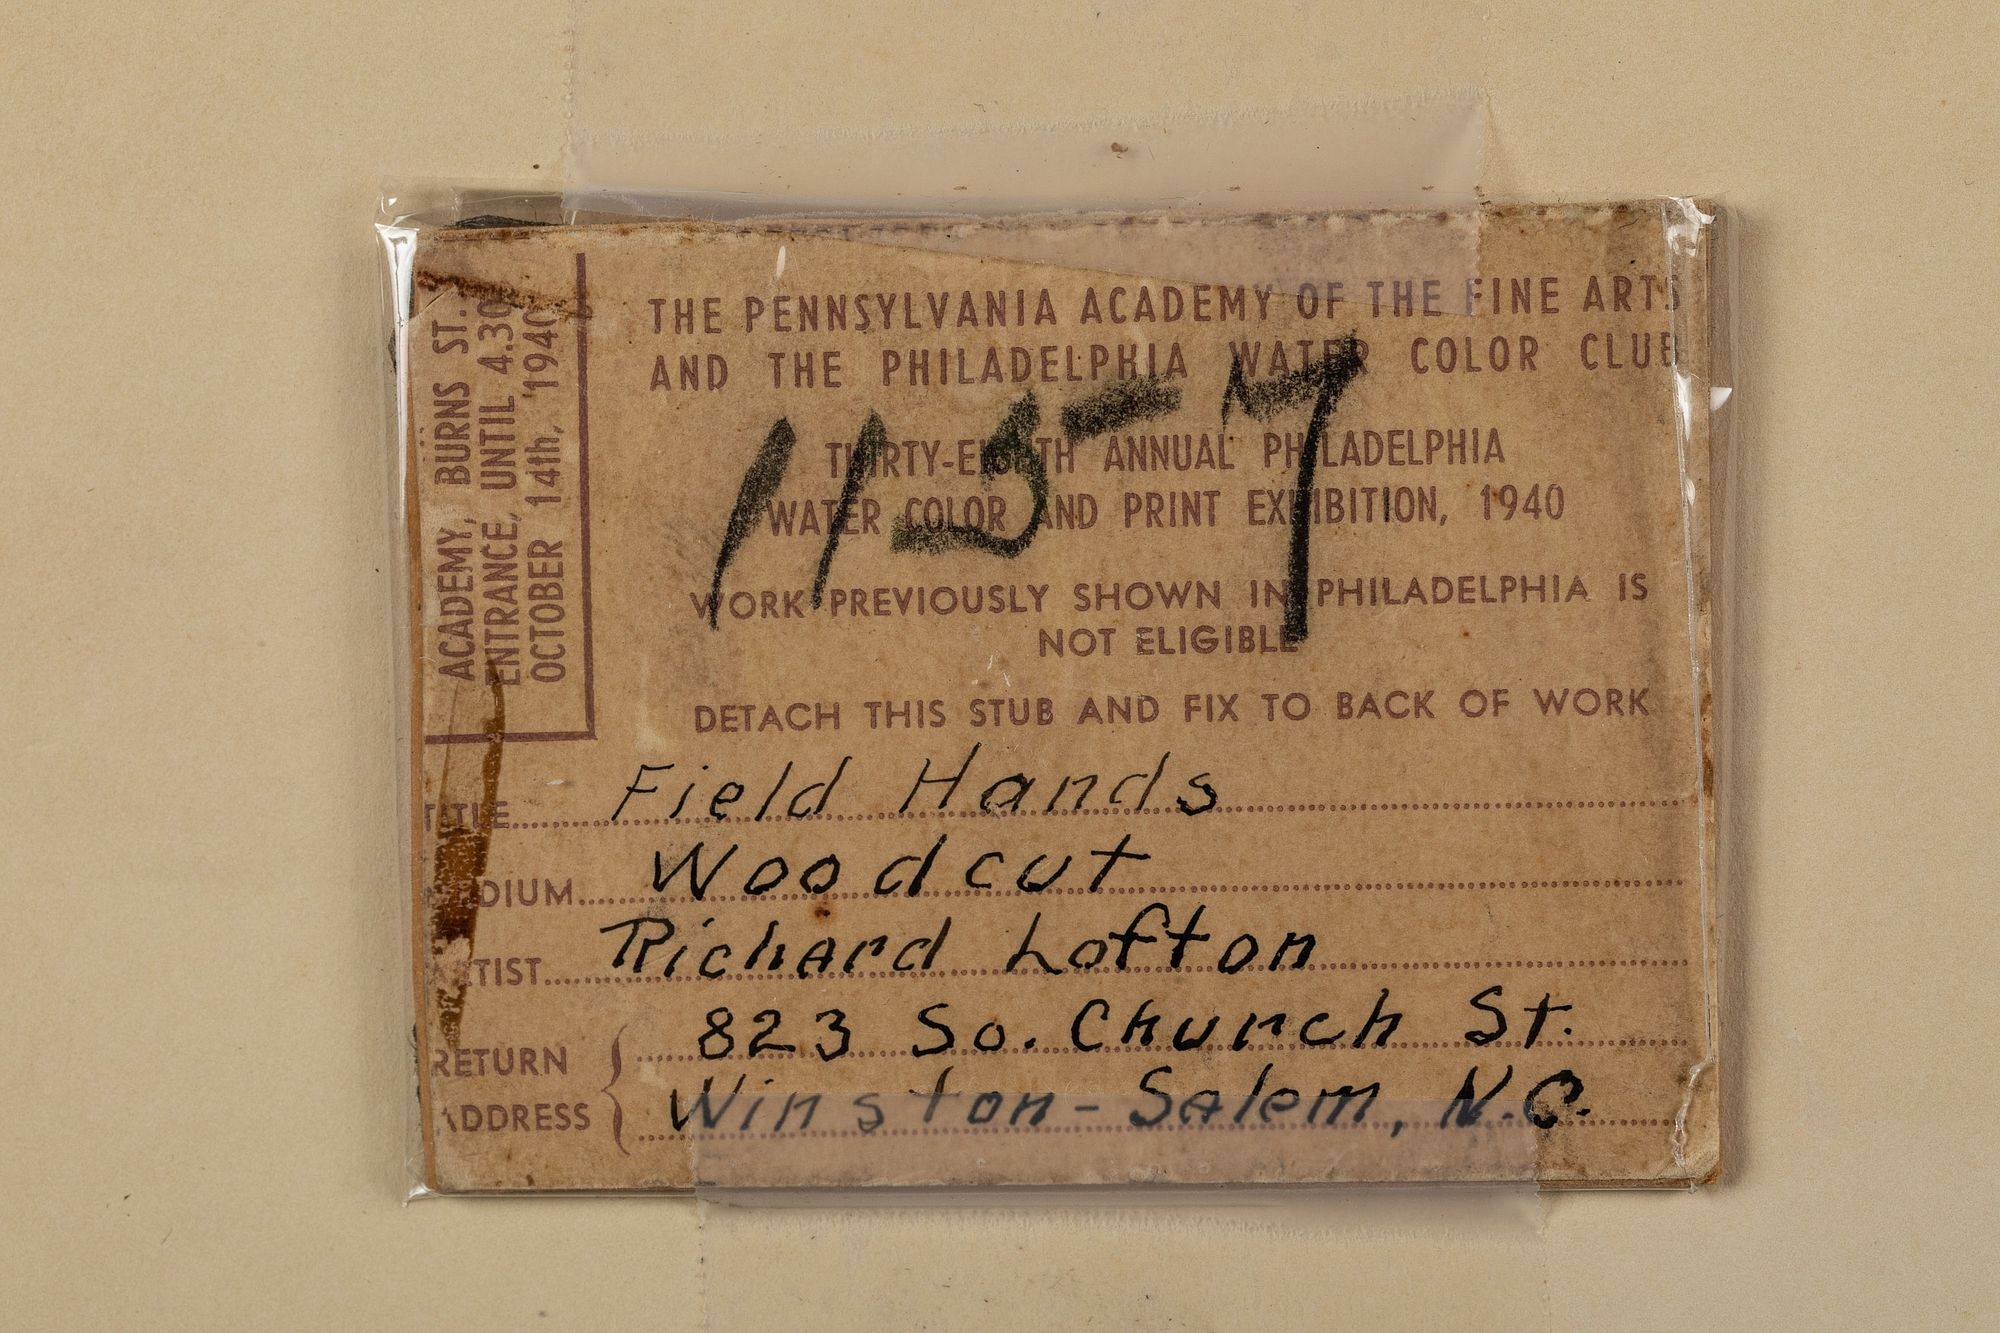 ACADEMY, BURNS ST.
ENTRANCE, UNTIL 4.30
OCTOBER 14th, 1940
THE PENNSYLVANIA ACADEMY OF THE FINE ARTS
AND THE PHILADELPHIA WATER COLOR CLUB
1157
THIRTY-EIGHTH ANNUAL PHILADELPHIA
WATER COLOR AND PRINT EXHIBITION, 1940
WORK PREVIOUSLY SHOWN IN PHILADELPHIA IS
NOT ELIGIBLE
DETACH THIS STUB AND FIX TO BACK OF WORK
TITLE Field Hands
MEDIUM Woodcut
ARTIST Richard Lofton
RETURN 823 So. Church St.
ADDRESS Winston-Salem, N.C.